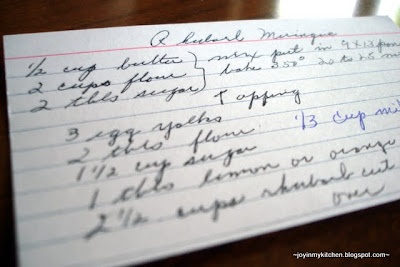 Rhubarb Meringue
1/2 cup butter } mix put in 9x13 pan
2 cups flour } bake 350° 20 to 25 m
2 tbls sugar
Topping
3 egg yolks
2 tbls flour 1/3 cup mil
1 1/2 cup sugar
1 tbls lemon or orange
2 1/2 cups rhubarb cut
over
~joyinmykitchen.blogspot.com~